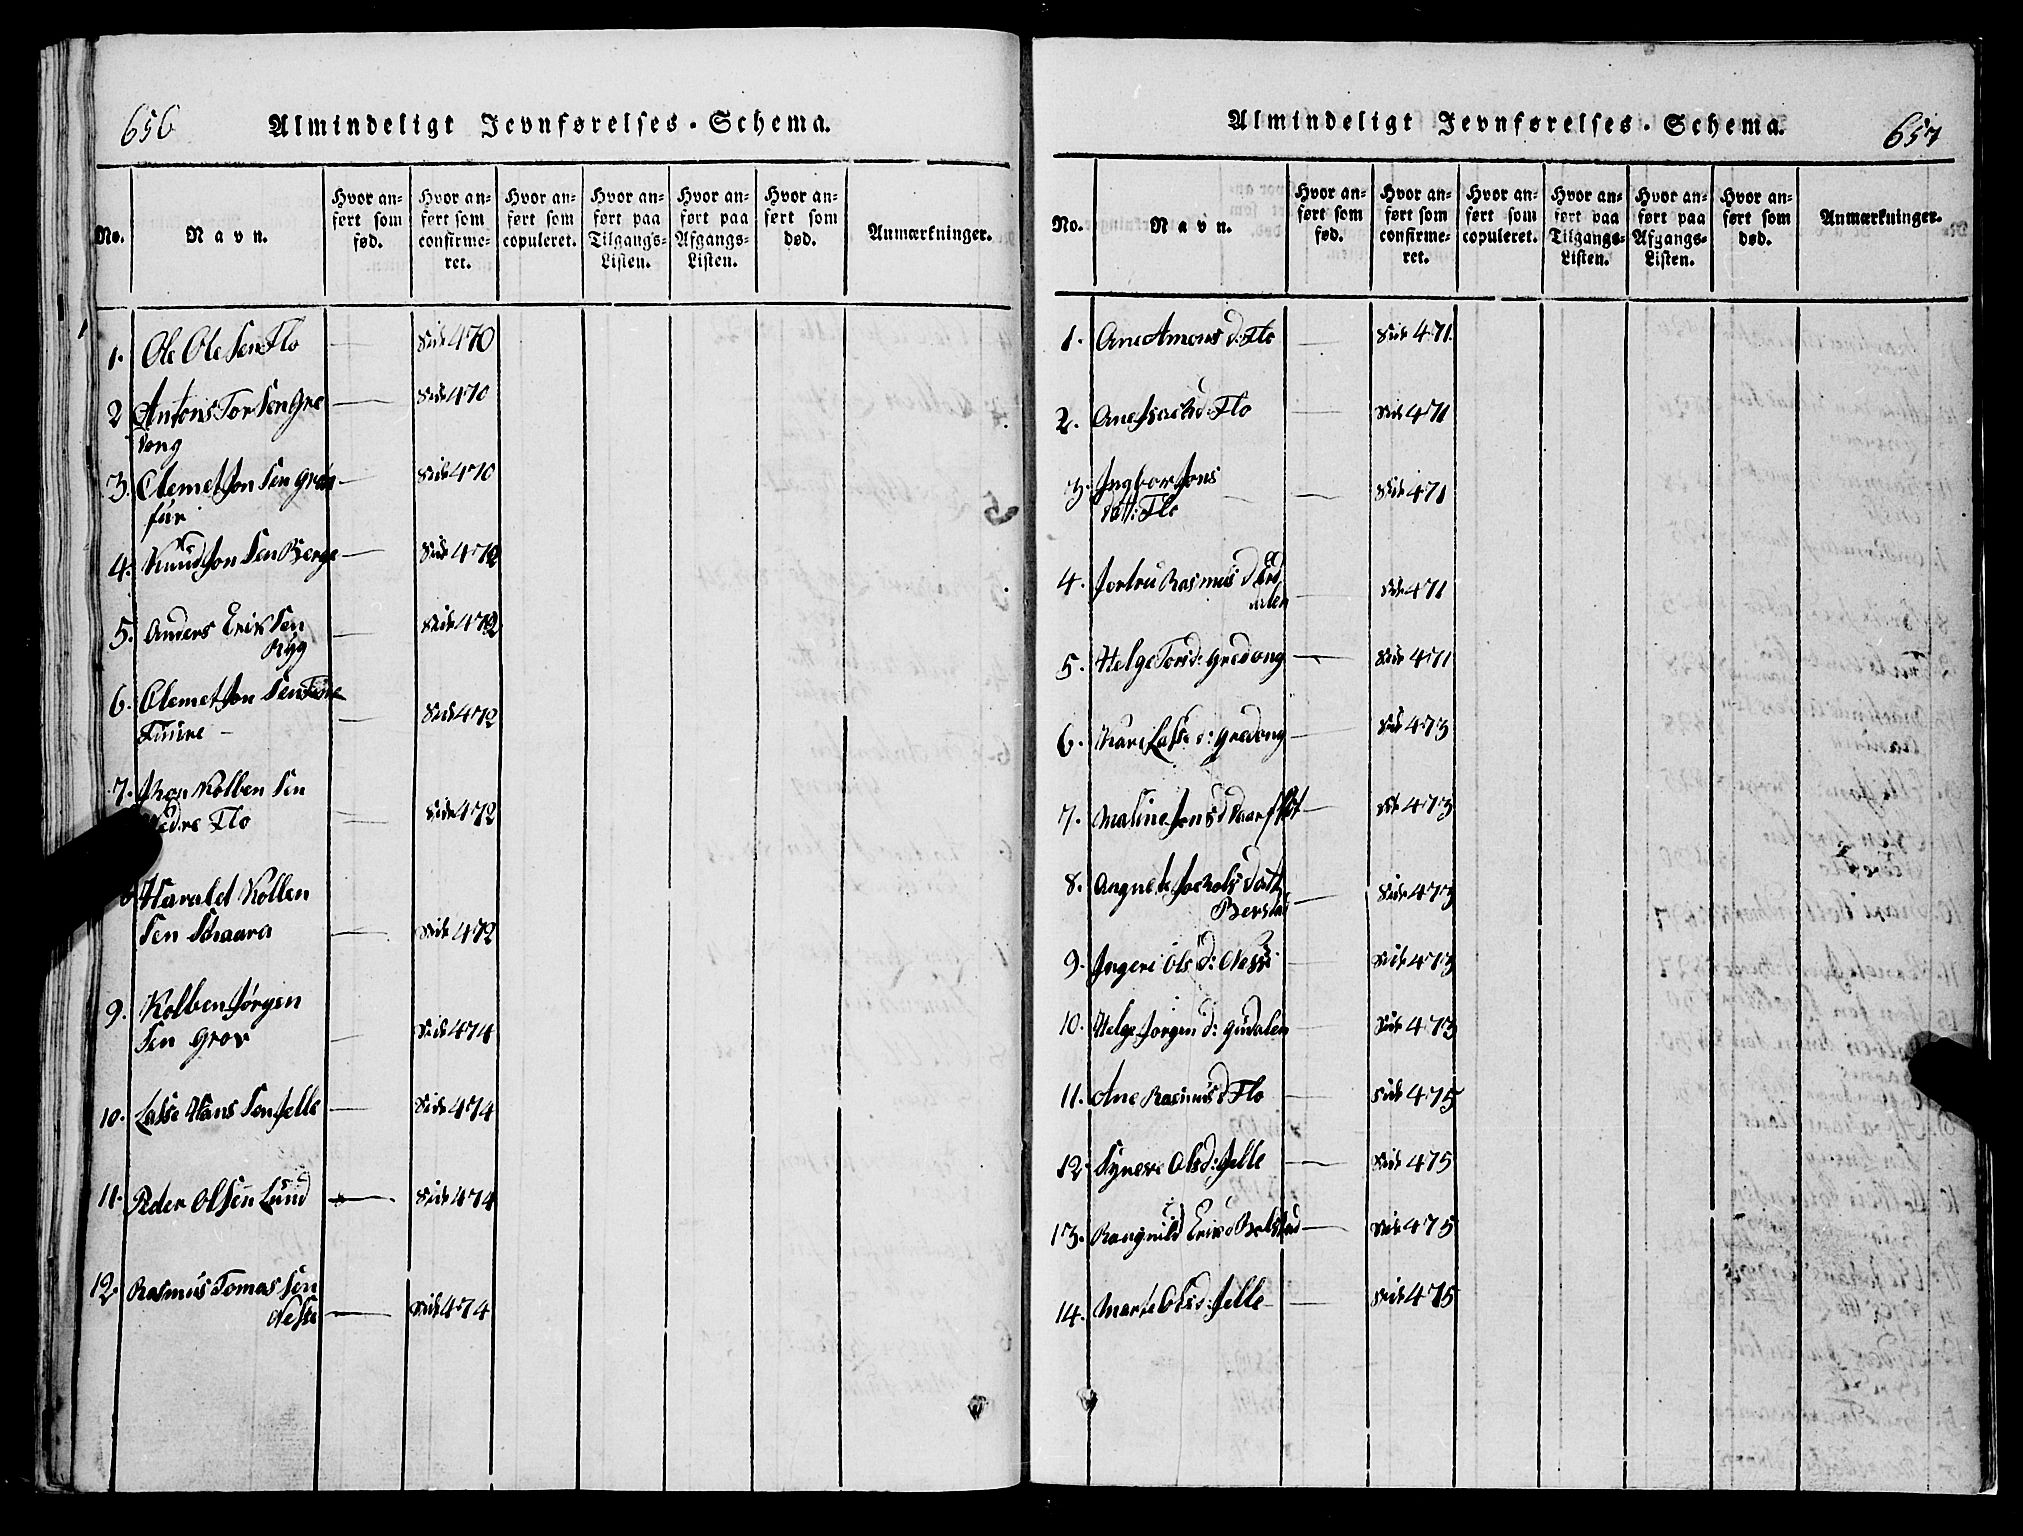 656
Almindeligt Jevnførelses-Schema.
No.
Navn.
Hvor anført som fød.
Hvor anført som confirmeret.
Hvor anført som copuleret.
Hvor anført paa Tilgangs-Listen.
Hvor anført paa Afgangs-Listen.
Hvor anført som død.
Anmærkninger.
1. Ole Ole Sen Flo — Side 470
2 Antons Tor Sen Gre — Side 470
dong
3. Clemet Jon Sen — Side 470
4. Knud Jon Sen Berge — Side 472
5. Anders Erik Sen — Side 472
Ryg
6. Clemet Jon Sen — Side 472
7. Kolben Sen
Nedre Flo — Side 472
Harald Kolben
Sen — Side 472
9. Kolben Jørgen
Sen Grov — Side 474
10. Lasse Hans Sen Jelle — Side 474
11. Peder Olsen Lund — Side 474
12 Rasmus Tomas Sen
Nesse — Side 474
Almindeligt Jevnførelses-Schema.
657
No.
Navn.
Hvor anført som fød.
Hvor anført som confirmeret.
Hvor anført som copuleret.
Hvor anført paa Tilgangs-Listen.
Hvor anført paa Afgangs-Listen.
Hvor anført som død.
Anmærkninger.
1. Ane Amons d: Flo — Side 471
2. Ane d: Flo — Side 471
3. Ingbor Jons
datt: Flo — Side 471
4. Jortru Rasmus d — Side 471
5. Helge Tors d: Gredong — Side 471
6. Kari Lasse d: Gredong — Side 473
7. Maline Jons d — Side 473
8. Angnete Jackobs datt — Side 473
9. Ingeri Ols d: Nesse — Side 473
10. Helge Jorgen d: — Side 473
11. Ane Rasmus d Flo — Side 475
12. Syneve Ols d: Jelle — Side 475
13. Rangnild Erik d — Side 475
14. Marte Ols d: Jelle — Side 475